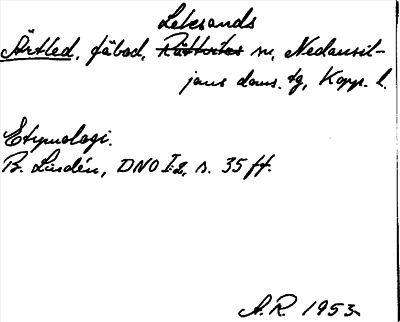 Leksands
Ärtled, fäbod, Rättviks sn, Nedansil-
jans doms. tg, Kopp. l.
Etymologi.
B. Lindén, DNO I:2, s. 35 ff.
A.R. 1953